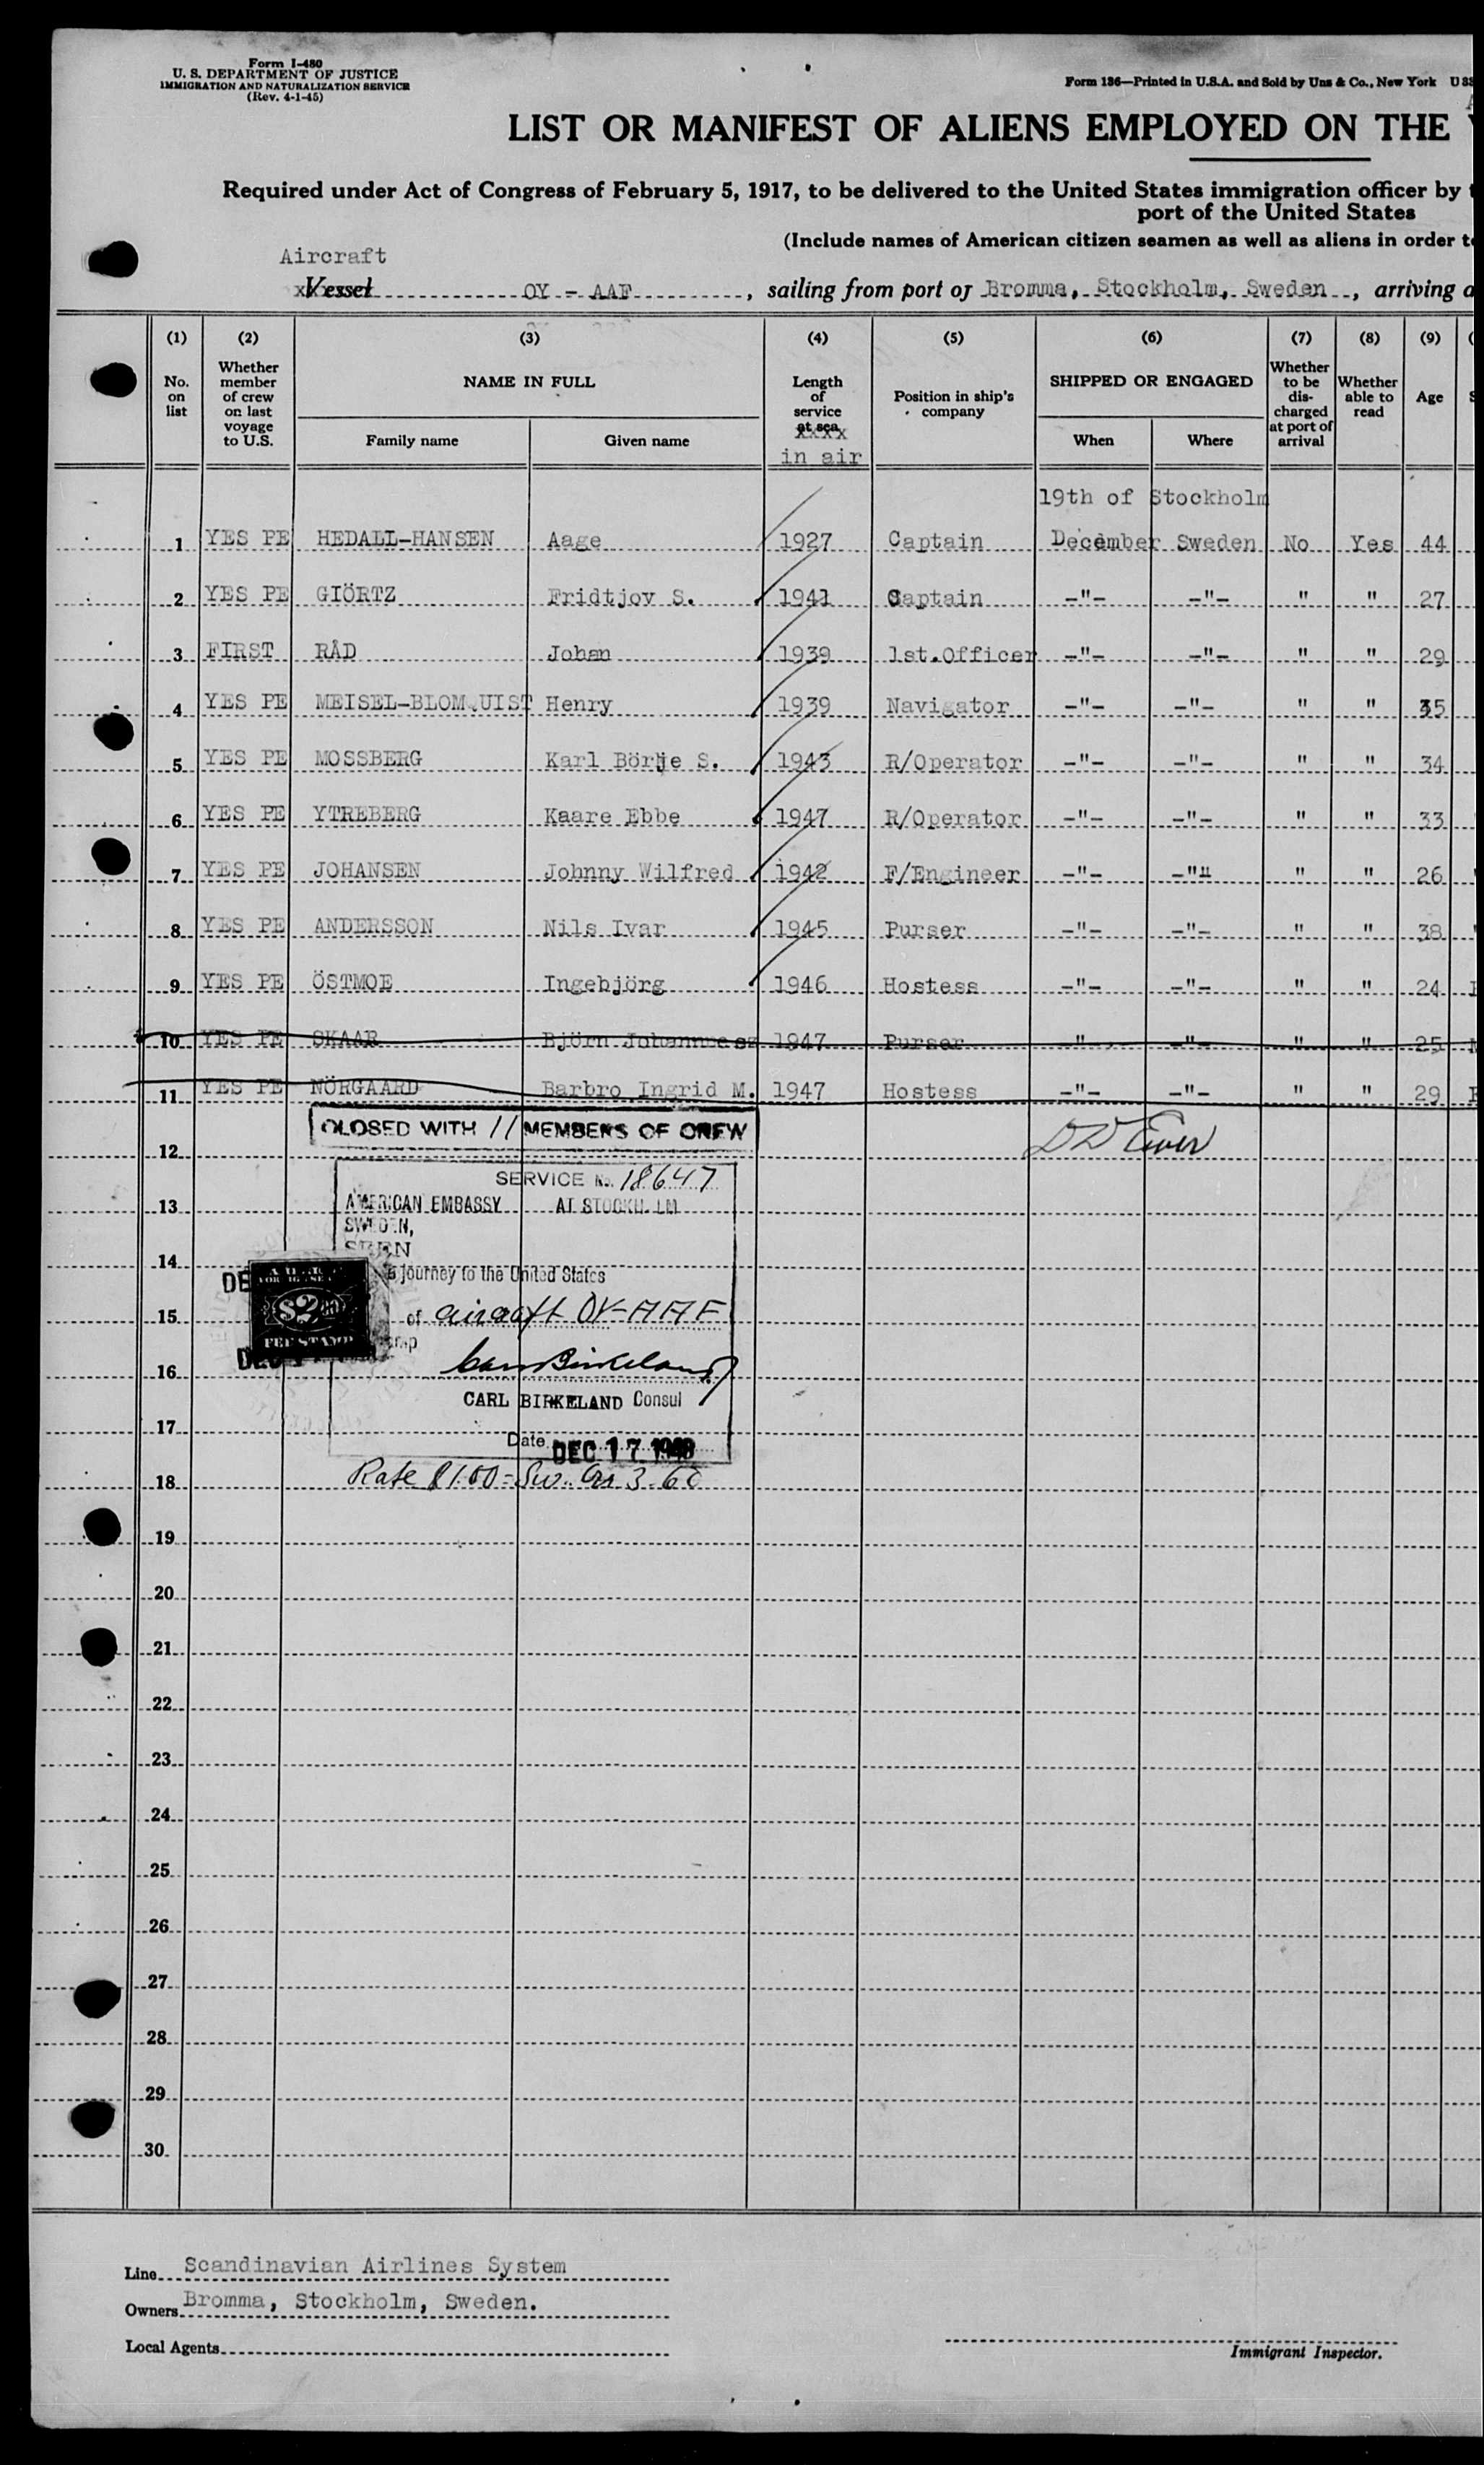 Form I-480
U. S. DEPARTMENT OF JUSTICE
IMMIGRATION AND NATURALIZATION SERVICE
(Rev. 4-1-45)
Form 136—Printed in U.S.A. and Sold by Unz & Co., New York
LIST OR MANIFEST OF ALIENS EMPLOYED ON THE
Required under Act of Congress of February 5, 1917, to be delivered to the United States immigration officer by
port of the United States
(Include names of American citizen seamen as well as aliens in order
Aircraft
Vessel OY - AAF, sailing from port of Bromma, Stockholm, Sweden, arriving
(1) (2) (3) (4) (5) (6) (7) (8) (9)
No. on list
Whether member of crew on last voyage to U.S.
NAME IN FULL
Family name
Given name
Length of service at sea
in air
Position in ship's company
SHIPPED OR ENGAGED
When
Where
Whether to be discharged at port of arrival
Whether able to read
Age
19th of Stockholm
1 YES PE HEDALL-HANSEN Aage 1927 Captain December Sweden No Yes 44
2 YES PE GIÖRTZ Fridtjov S. 1941 Captain -"- -"- " " 27
3 FIRST RÅD Johan 1939 1st.Officer -"- -"- " " 29
4 YES PE MEISEL-BLOMQUIST Henry 1939 Navigator -"- -"- " "
5 YES PE MOSSBERG Karl Börje S. 1943 R/Operator -"- -"- " " 34
6 YES PE YTREBERG Kaare Ebbe 1947 R/Operator -"- -"- " " 33
7 YES PE JOHANSEN Johnny Wilfred 1942 F/Engineer -"- -"" " " 26
8 YES PE ANDERSSON Nils Ivar 1945 Purser -"- -"- " " 38
9 YES PE ÖSTMOE Ingebjörg 1946 Hostess -"- -"- " " 24
10 YES PE SKAAR Björn 1947 Purser -"- -"- " " 25
11 YES PE NÖRGAARD Barbro Ingrid M. 1947 Hostess -"- -"- " " 29
CLOSED WITH 11 MEMBERS OF CREW
12
SERVICE No. 18647
13
AMERICAN EMBASSY AT STOCKHOLM
SWEDEN,
14
journey to the United States
DE
$2
15
of aircraft OY-AAF
PER STAMP
16
CARL BIRKELAND Consul
17
Date DEC 17 1948
18
Rate $1.00 = Sw. Crs 3.60
19
20
21
22
23
24
25
26
27
28
29
30
Line Scandinavian Airlines System
Owners Bromma, Stockholm, Sweden.
Local Agents
Immigrant Inspector.